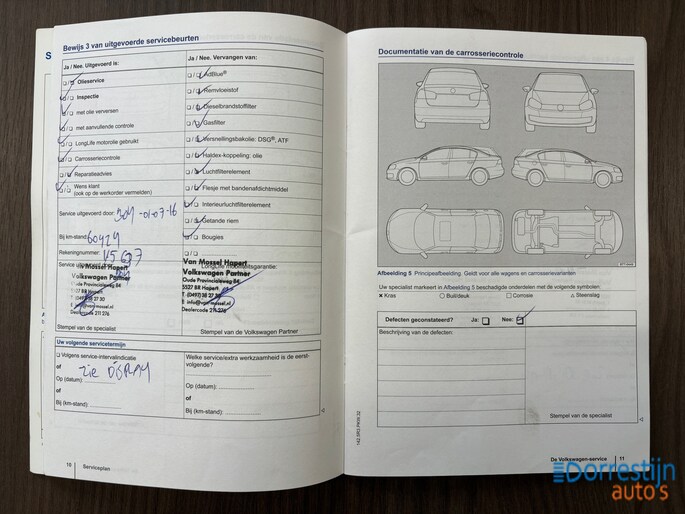 Bewijs 3 van uitgevoerde servicebeurten
Ja / Nee. Uitgevoerd is:
Olieservice
Inspectie
met olie verversen
met aanvullende controle
LongLife motorolie gebruikt
Carrosseriecontrole
Reparatieadvies
Wens klant
(ook op de werkorder vermelden)
Service uitgevoerd door: -01-07-16
Bij km-stand: 60424
Rekeningnummer:
Service uitgevoerd
Van Mossel Hapert
Volkswagen Partner
Oude Provincialeweg 84
5527 BR Hapert
Dealercode 211 276
Stempel van de specialist
Ja / Nee. Vervangen van:
AdBlue®
Remvloeistof
Dieselbrandstoffilter
Gasfilter
Versnellingsbakolie: DSG®, ATF
Haldex-koppeling: olie
Luchtfilterelement
Flesje met bandenafdichtmiddel
Interieurluchtfilterelement
Getande riem
Bougies
LongLife mobiliteitsgarantie:
Van Mossel Hapert
Volkswagen Partner
Oude Provincialeweg 84
5527 BR Hapert
T (0497) 38 27 30
E info@van-mossel.nl
Dealercode 211 276
Stempel van de Volkswagen Partner
Uw volgende servicetermijn
Volgens service-intervalindicatie
of zie DISPLAY
Op (datum):
of
Bij (km-stand):
Welke service/extra werkzaamheid is de eerst-
volgende?
Op (datum):
of
Bij (km-stand):
10 Serviceplan
Documentatie van de carrosseriecontrole
Afbeelding 5 Principeafbeelding. Geldt voor alle wagens en carrosserievarianten
Uw specialist markeert in Afbeelding 5 beschadigde onderdelen met de volgende symbolen:
✕ Kras ○ Buil/deuk □ Corrosie △ Steenslag
Defecten geconstateerd? Ja: Nee:
Beschrijving van de defecten:
Stempel van de specialist
De Volkswagen-service 11
Dorrestijn
auto's